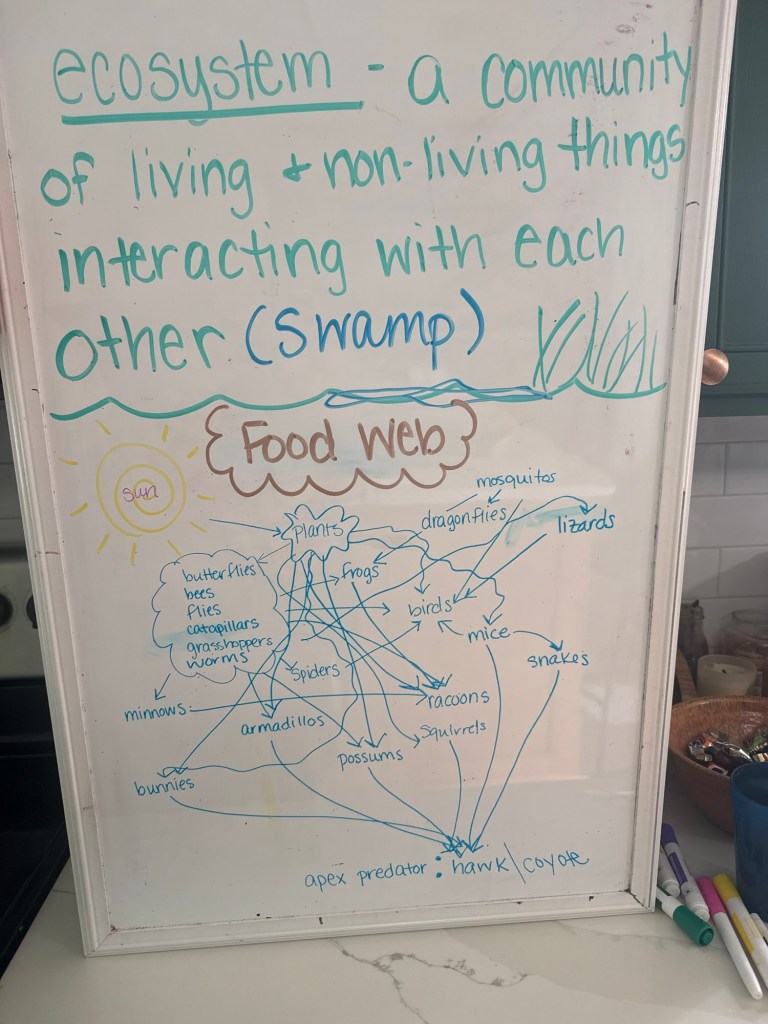 ecosystem - a community
of living + non-living things
interacting with each
other (swamp)
Food Web
sun
mosquitos
plants
dragonflies
lizards
butterflies
bees
flies
catapillars
grasshoppers
worms
frogs
birds
mice
snakes
spiders
minnows
armadillos
racoons
squirrels
possums
bunnies
apex predator: hawk\coyote